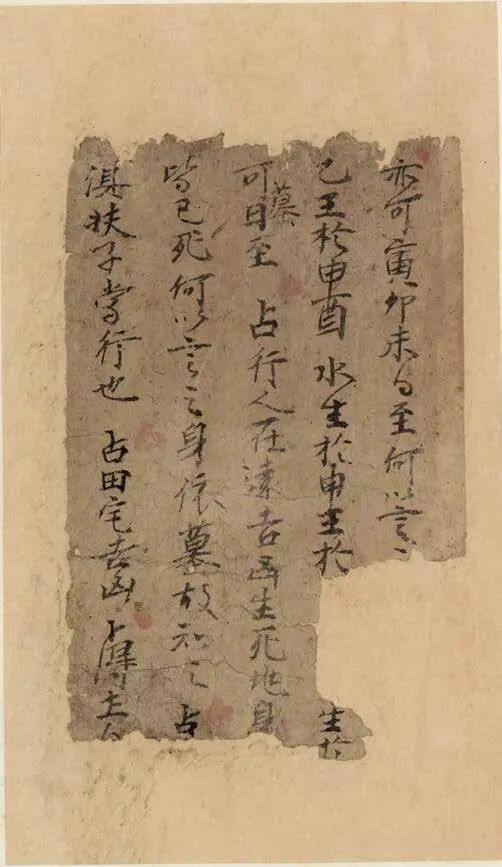 亦可寅卯未日至何以言之
巳王於申酉水生於申王於 生於
可墓日至 占行人在遠吉凶生死地身
皆已死何以言之身依墓故知之占
扶子當行也 占田宅吉凶卜得土